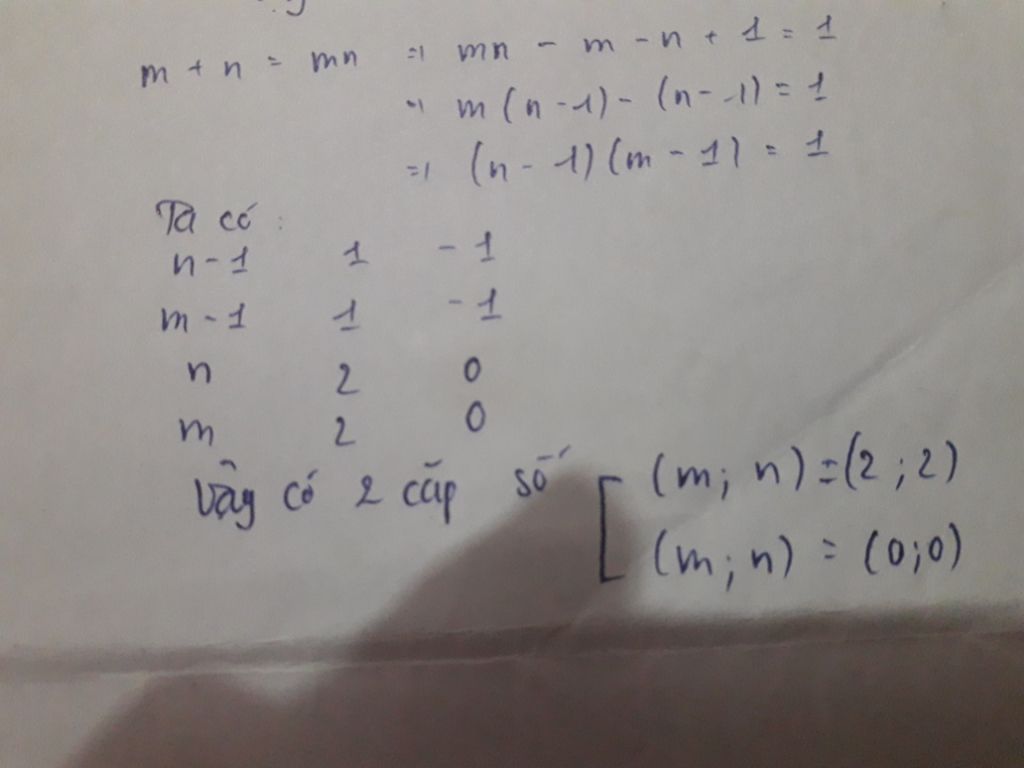 m + n = mn => mn - m - n + 1 = 1
=> m(n-1) - (n-1) = 1
=> (n-1)(m-1) = 1
Ta có:
n-1 1 -1
m-1 1 -1
n 2 0
m 2 0
Vậy có 2 cặp số [ (m; n) = (2; 2)
(m; n) = (0; 0)